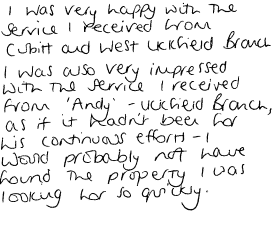 I was very happy with the
service I received from
Cubitt and West Uckfield Branch
I was also very impressed
with the service I received
from 'Andy' - Uckfield Branch,
as if it hadn't been for
his continuous effort - I
would probably not have
found the property I was
looking for so quickly.